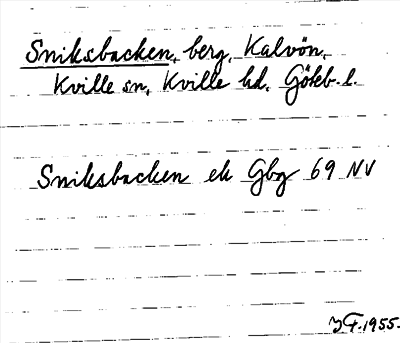 Sniksbacken, berg, Kalvön,
Kville sn, Kville hd, Göteb. l.
Sniksbacken ek Gbg 69 NV
1955.